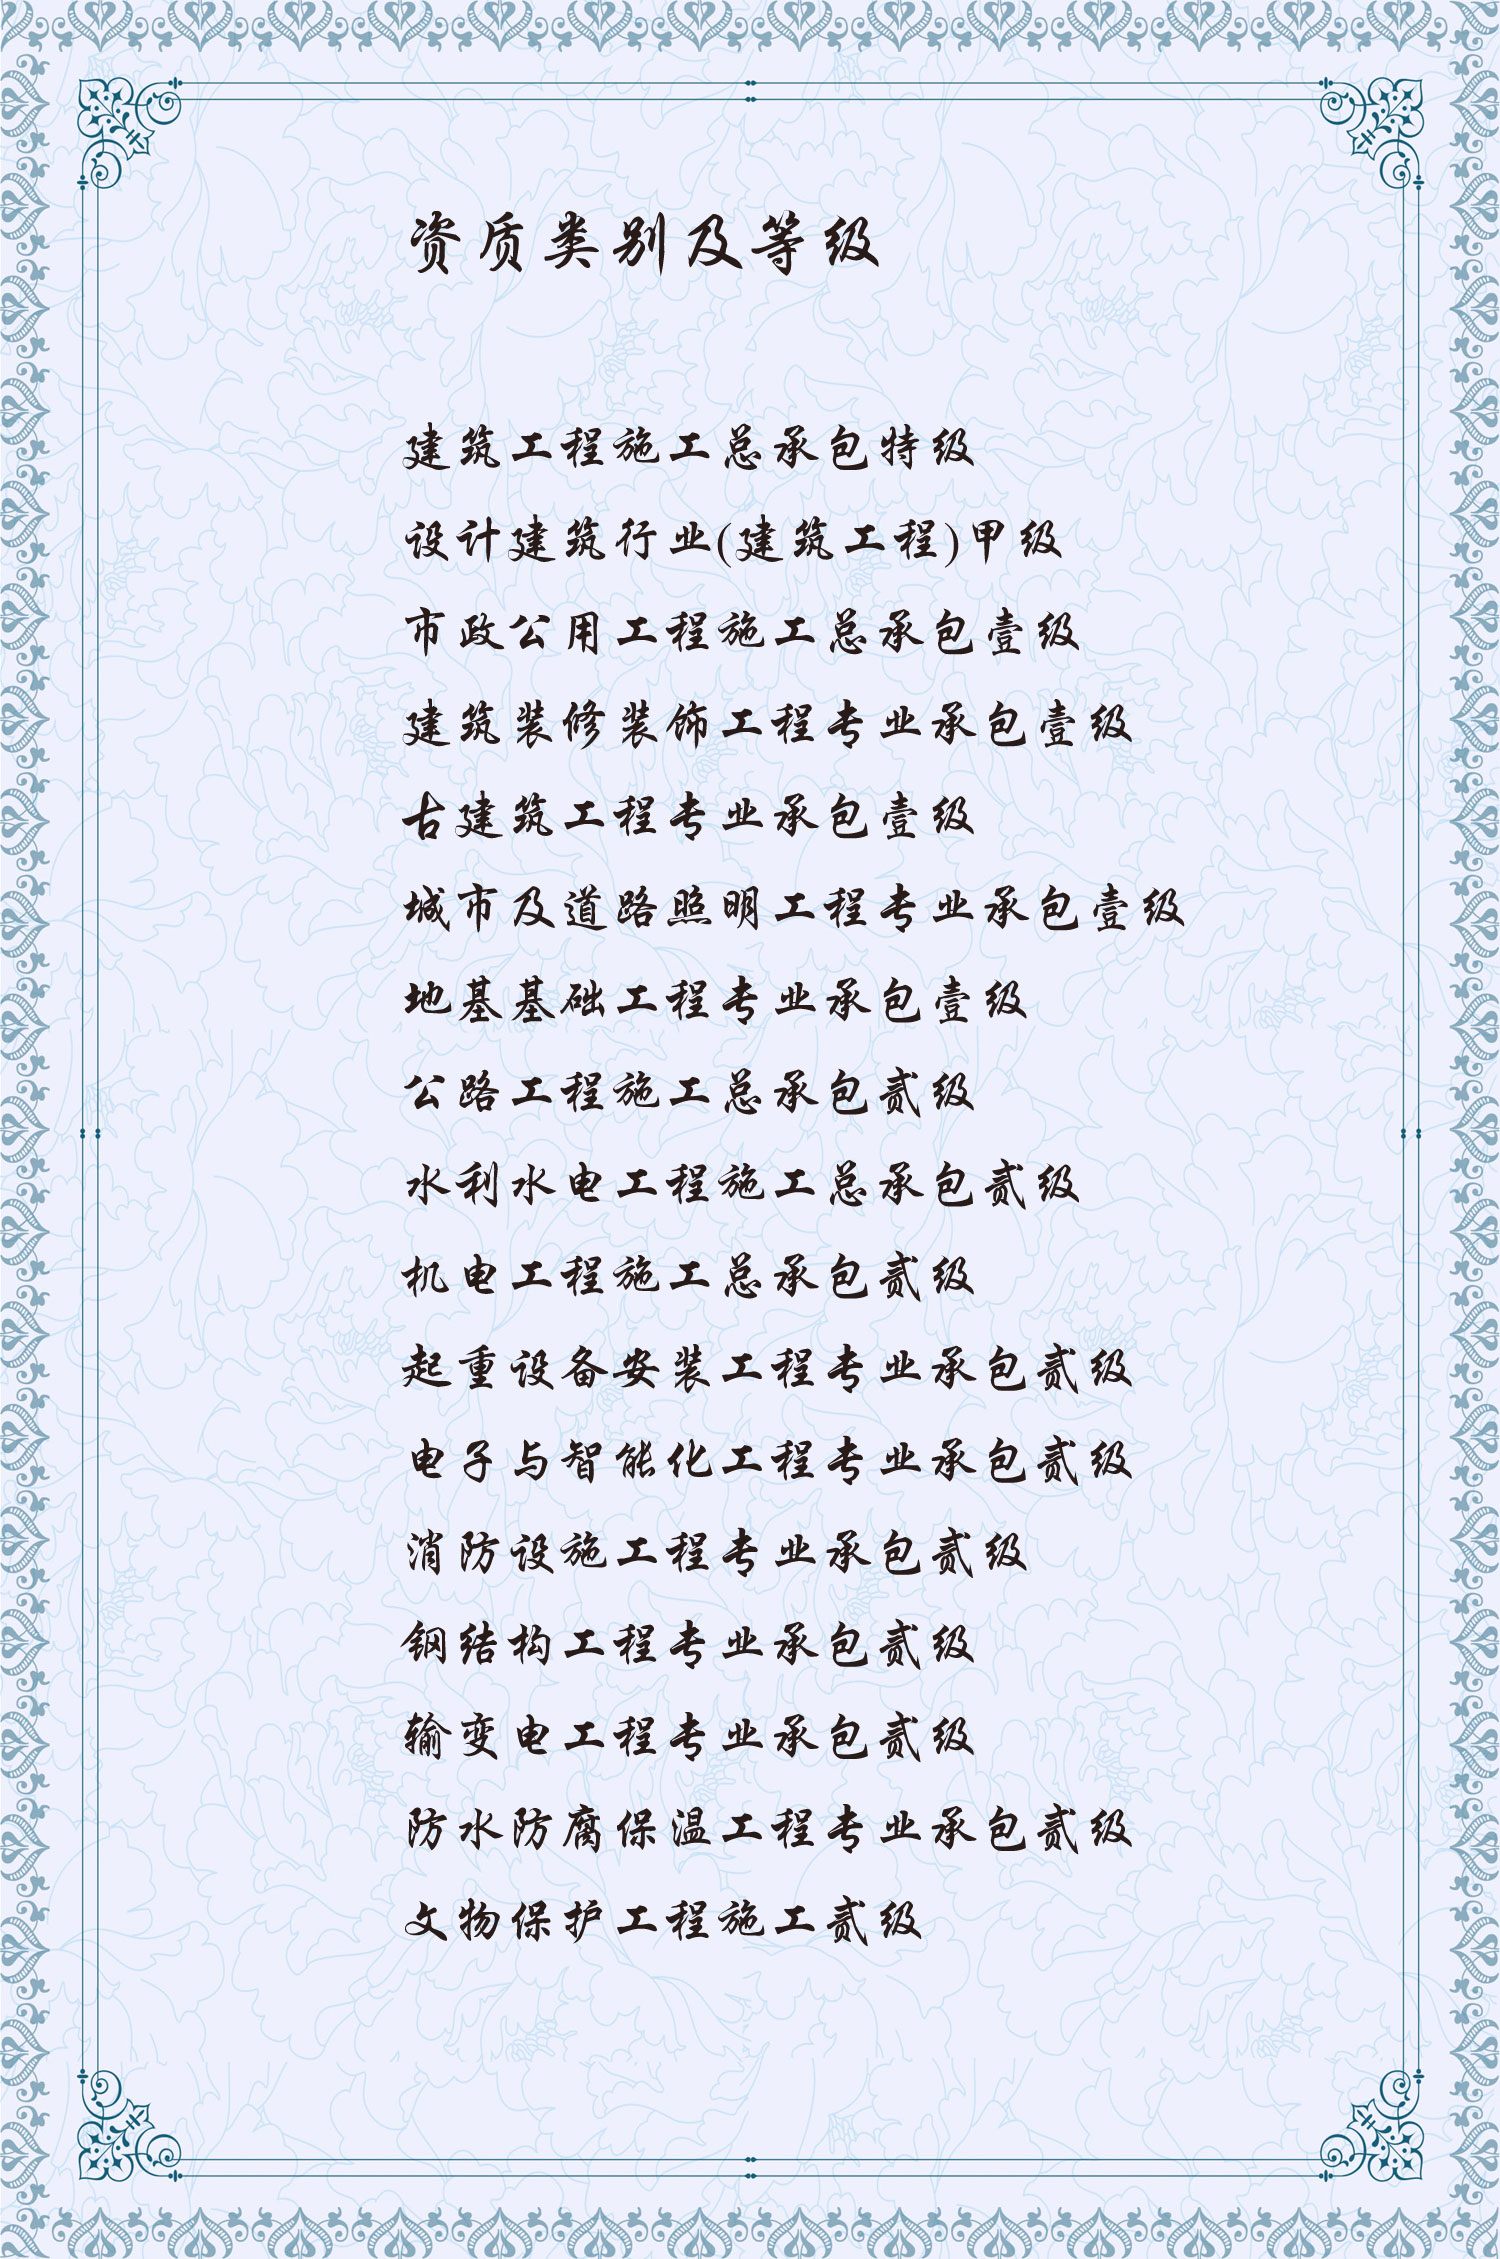 资质类别及等级
建筑工程施工总承包特级
设计建筑行业(建筑工程)甲级
市政公用工程施工总承包壹级
建筑装修装饰工程专业承包壹级
古建筑工程专业承包壹级
城市及道路照明工程专业承包壹级
地基基础工程专业承包壹级
公路工程施工总承包贰级
水利水电工程施工总承包贰级
机电工程施工总承包贰级
起重设备安装工程专业承包贰级
电子与智能化工程专业承包贰级
消防设施工程专业承包贰级
钢结构工程专业承包贰级
输变电工程专业承包贰级
防水防腐保温工程专业承包贰级
文物保护工程施工贰级